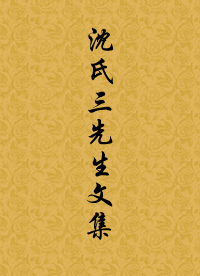 沈氏三先生文集